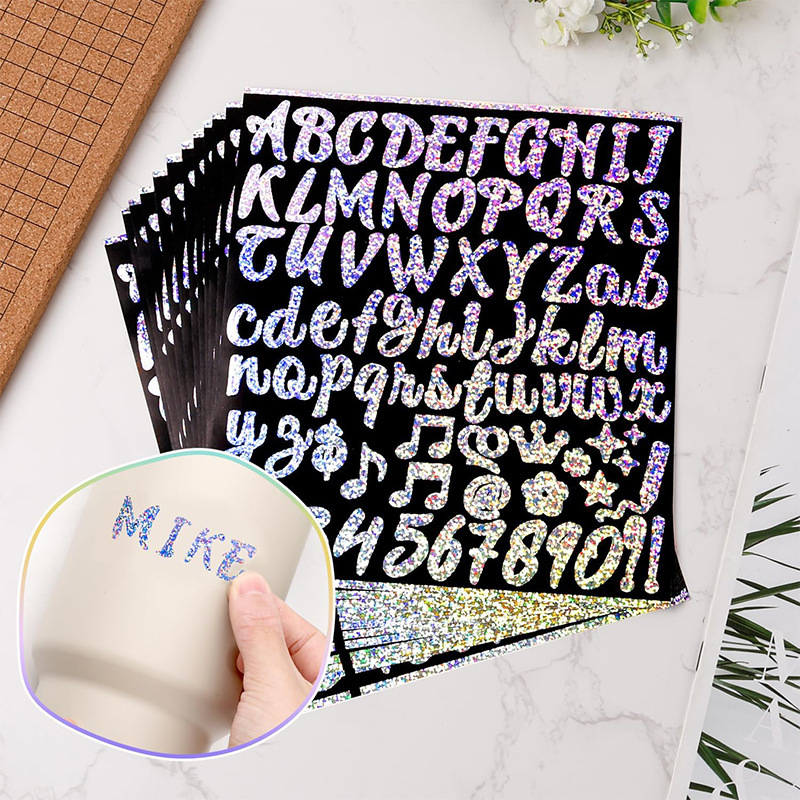 ABCDEFGHIJ
KLMNOPQRS
TUVWXYZab
cdefghijklm
nopqrstuvwx
yz$
@
34567890?!
MIKE
A
A